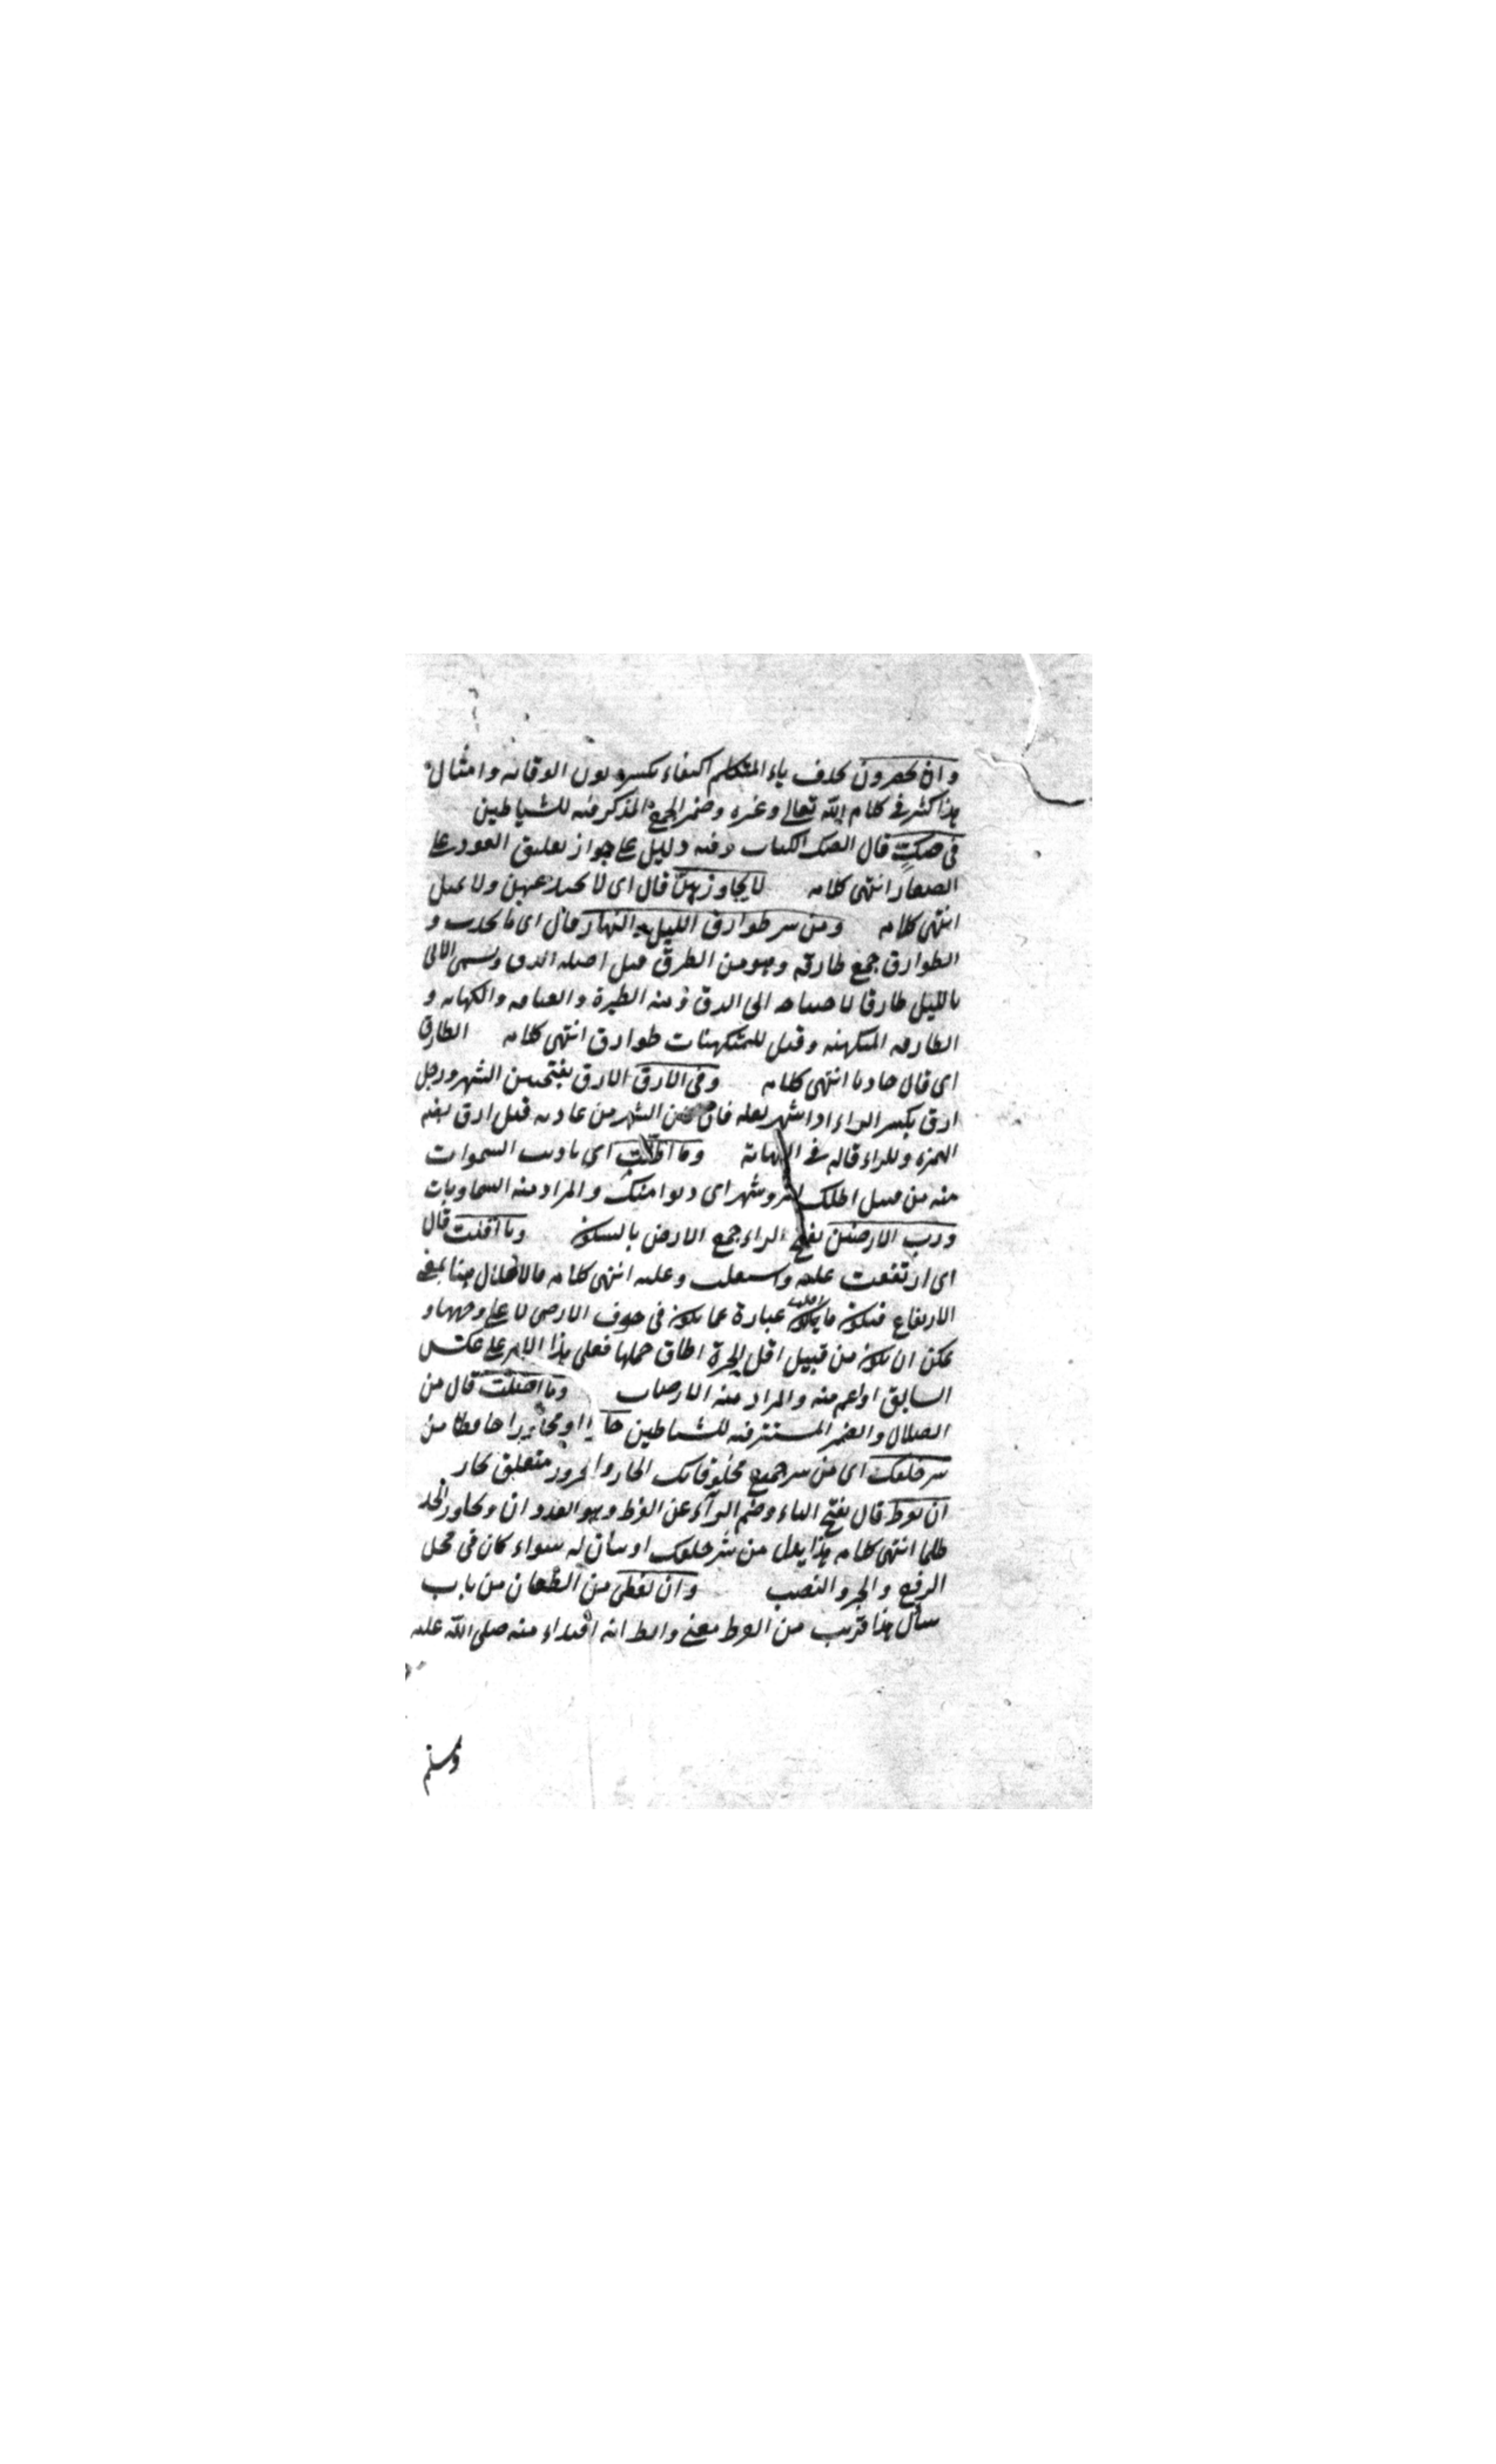 وان يحضرون بحذف ياء المتكلم اكتفاء بكسرة نون الوقاية وامثال
هذا كثير في كلام الله تعالى وغيره وضمير الجمع المذكر فيه للشياطين
في صكٍ قال الصك الكتاب وفيه دليل على جواز تعليق العوذ على
الصغار انتهى كلامه لا يجاوزهن قال اى لا يحيد عنهن ولا يميل
انتهى كلامه ومن شر طوارق الليل والنهار قال اى ما يحدث و
الطوارق جمع طارقة وهو من الطرق قيل اصله الدق ويسمى الآتى
بالليل طارقا لاحتياجه الى الدق ومنه الطيرة والعيافة والكهانة و
الطارقة المتكهنة وقيل للمتكهنات طوارق انتهى كلامه الطارق
اى قال حادثا انتهى كلامه وفي الارق الارق بفتحتين السهر ورجل
ارق بكسر الراء اذا سهر لعلة فان كان السهر من عادته قيل ارق بضم
الهمزة والراء قاله في النهاية وما اظلت اى ما دنت السموات
منه من قبيل اظلك شهر اى دنا منك والمراد منه السماويات
ورب الارضين بفتح الراء جمع الارض بالسكون وما اقلت قال
اى ارتفعت عليه واستعلت وعليه انتهى كلامه فالاقلال هنا بمعنى
الارتفاع فيكون ما يكون عبارة عما يكون في جوف الارض لا على وجهها و
يمكن ان يكون من قبيل اقل الجرة اطاق حملها فعلى هذا الامر على عكس
السابق او اعم منه والمراد منه الارضيات وما اضلت قال من
الضلال والضمير المستتر فيه للشياطين جارا او مجاورا حافظا من
شر خلقك اى من شر جميع مخلوقاتك الجار والمجرور متعلق بجار
ان يفرط قال بفتح الياء وضم الراء عن الفرط وهو العدوان وتجاوز الحد
ظلما انتهى كلامه هذا بدل من شر خلقك او بيان له سواء كان في محل
الرفع والجر والنصب وان يطغى من الطغيان من باب
سأل هذا قريب من الفرط معنى والظ انه اقتداء منه صلى الله عليه
وسلم